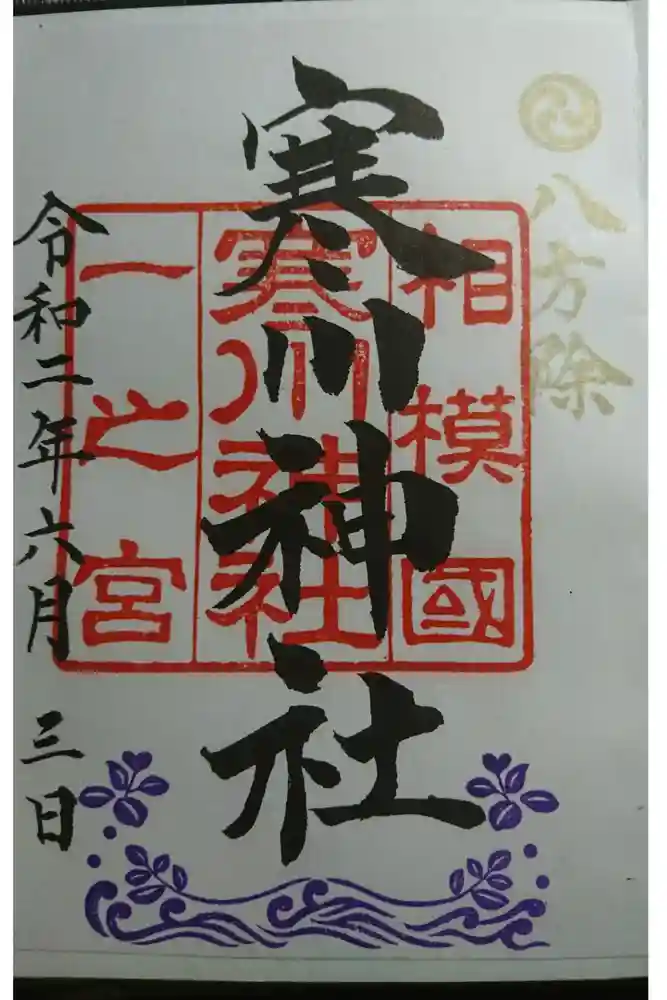 八方除
寒川神社
相模國
寒川神社
一之宮
令和二年六月三日